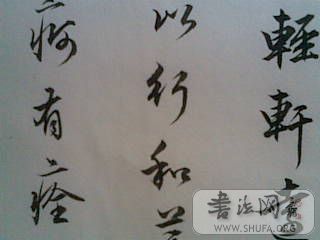 輕軒
以行和
痾有痊
书法网
WWW.SHUFA.ORG